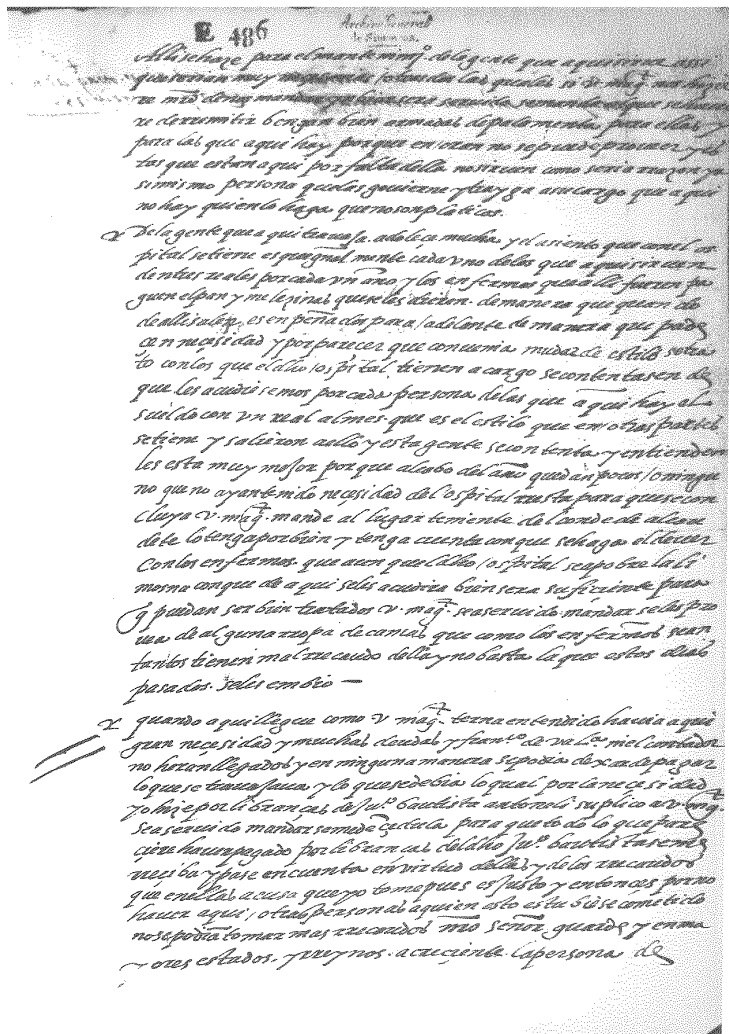 E 486
Archivo General
de Simancas
Alli se haze para el mantenimjº. de la gente que aqui sirve assi
que serian muy necesarias las quales si v. magt. nos haze
md de nos mandar
re de remitir bengan bien armadas de palamenta para ellas y
para las que aqui hay porque en oran no se puede proveer y es
tas que estan aqui por falta della no sirven como seria rrazon ya
simismo persona que las govierne y trayga a su cargo que aqui
no hay quien lo haga que no son platicos.
De la gente que aqui travaja adoleçe mucha, y el asiento que con el os
pital se tiene es que gnalmente cada uno de los que aqui sirven
den tres reales por cada un año y los enfermos que alli fueren pa
guen el pan y melezinas que se les dieren. de manera que quando
de alli salen es enpeñados para adelante de manera que pade
çen neçesidad y por parecer que convenia mudar de estilo se tra
to con los que el dho ospital tienen a cargo se contentasen de
que les acudiesemos por cada persona de las que aqui hay el
sueldo con un real al mes que es el estilo que en otras partes
se tiene y salieron a ello y esta gente se contenta y entienden
les esta muy mejor porque al cabo del año quedan pocos o ningu
no que no ayan tenido neçesidad del ospital rresta para que se con
cluya v. magt. mande al lugarteniente del conde de alcau
dete lo tenga por bien y tenga cuenta con que se haga el dever
Con los enfermos que aunque el dho ospital sea pobre la li
mosna con que de aqui se les acudira bien sera suficiente para
q puedan ser bien tratados v. magt. sea servido mandar se les pro
vea de alguna rropa de camas que como los enfermos sean
tantos tienen mal rrecaudo della y no basta la que estos dias
pasados se les embio —
quando aqui llegue como v. magt. terna entendido havia aqui
gran neçesidad y muchas deudas y franco. de val. ni el contador
no heran llegados y en ninguna manera se podia dexar de pagar
lo que se travajava y lo que se debia lo qual por la neçesidad
yo hize por libranças de Juº. bautista antoneli suplico a v. magt.
sea servido mandar se me de çedula para que todo lo que pare
çiere haver pagado por libranças del dho Juº. bautista se me
reçiba y pase en cuenta en virtud dellas y de los rrecaudos
que en ellas acusa que yo tome pues es justo y entonces por no
haver aqui otras personas a quien esto estubiese cometido
no se podia tomar mas rrecaudos nro señor guarde y en ma
yores estados y rreynos acreçiente la persona de